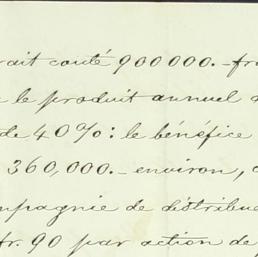 rait couté 900000.- fra
le produit annuel
de 40%: le bénéfice
360,000.- environ,
mpagnie de distribue
fr. 90 par action de